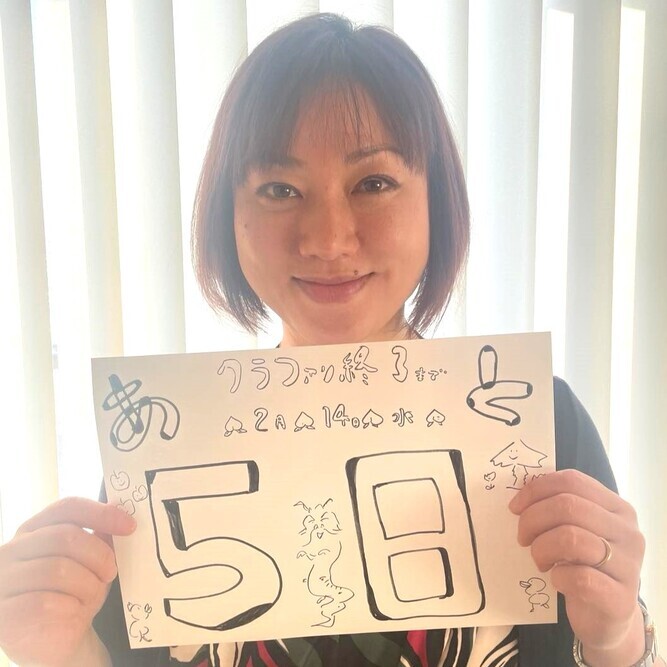 あと
クラファン終了まで
2月14日水
5日